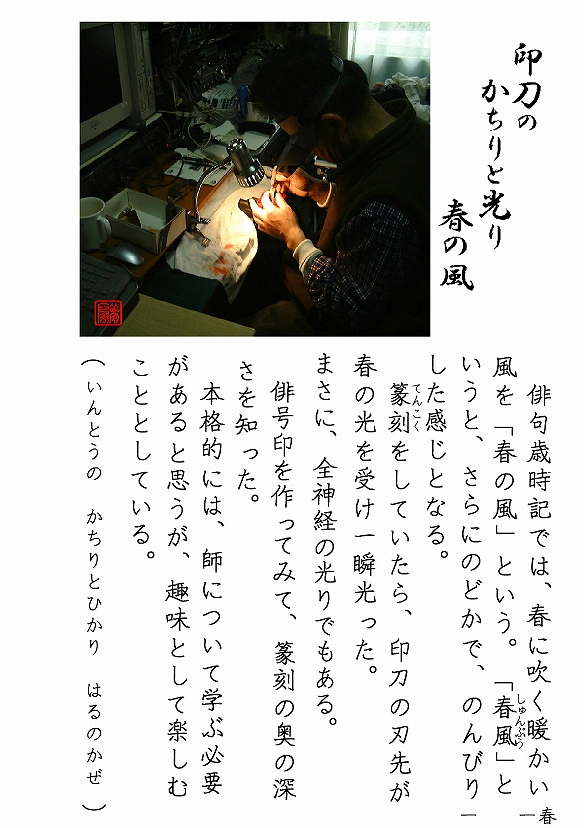 印刀の
かちりと光り
春の風
俳句歳時記では、春に吹く暖かい
風を「春の風」という。「春風」と
しゅんぷう
いうと、さらにのどかで、のんびり
した感じとなる。
篆刻をしていたら、印刀の刃先が
てんこく
春の光を受け一瞬光った。
まさに、全神経の光りでもある。
俳号印を作ってみて、篆刻の奥の深
さを知った。
本格的には、師について学ぶ必要
があると思うが、趣味として楽しむ
こととしている。
(いんとうの かちりとひかり はるのかぜ)
―春―